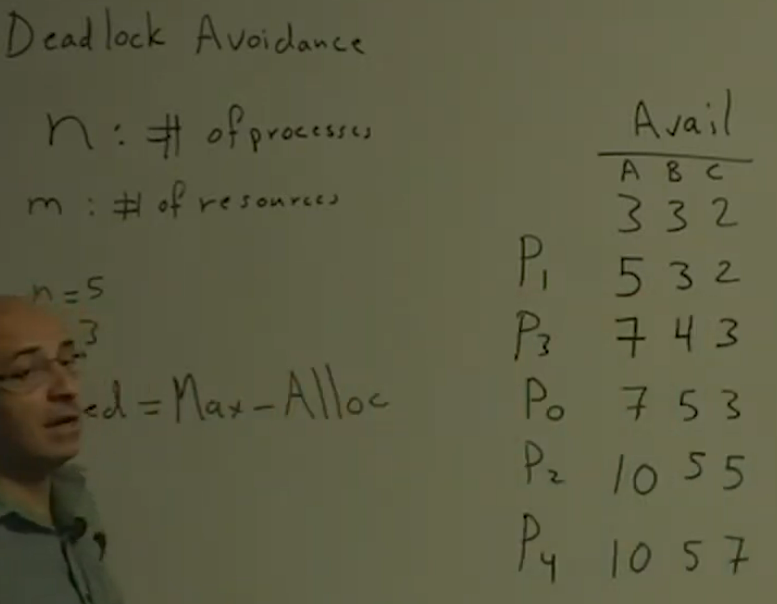 Deadlock Avoidance
n : # of processes
m : # of resources
n = 5
3
ed = Max - Alloc
Avail
A B C
3 3 2
P1 5 3 2
P3 7 4 3
P0 7 5 3
P2 10 5 5
P4 10 5 7